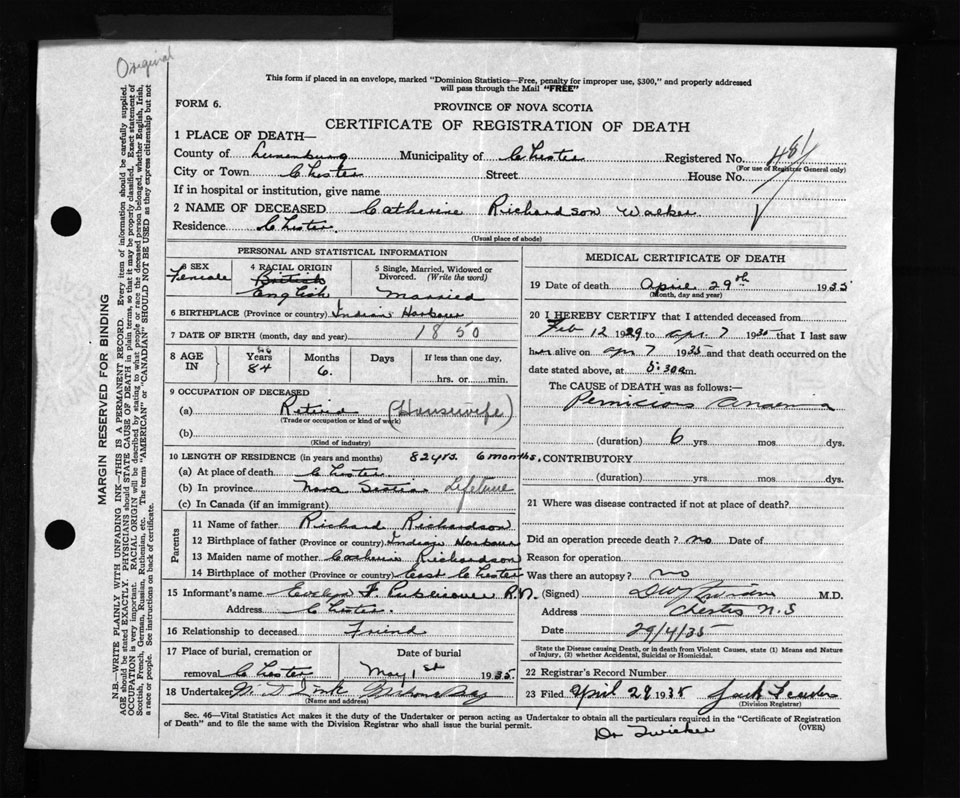 Original
This form if placed in an envelope, marked "Dominion Statistics—Free, penalty for improper use, $300," and properly addressed
will pass through the Mail "FREE"
FORM 6.
PROVINCE OF NOVA SCOTIA
CERTIFICATE OF REGISTRATION OF DEATH
1 PLACE OF DEATH—
County of Lunenburg Municipality of Chester Registered No. 481
(For use of Registrar General only)
City or Town Chester Street House No.
If in hospital or institution, give name
2 NAME OF DECEASED Catherine Richardson Walker
Residence Chester.
(Usual place of abode)
PERSONAL AND STATISTICAL INFORMATION
3 SEX 4 RACIAL ORIGIN 5 Single, Married, Widowed or
Divorced. (Write the word)
Female British
English Married
6 BIRTHPLACE (Province or country) Indian Harbour
7 DATE OF BIRTH (month, day and year) 1850
8 AGE IN Years Months Days If less than one day,
84 6. ...hrs. or...min.
9 OCCUPATION OF DECEASED
(a) Retired (Housewife)
(Trade or occupation or kind of work)
(b)
(Kind of industry)
10 LENGTH OF RESIDENCE (in years and months) 82 yrs. 6 months.
(a) At place of death Chester
(b) In province Nova Scotia Lifetime
(c) In Canada (if an immigrant)
Parents
11 Name of father Richard Richardson
12 Birthplace of father (Province or country) Indian Harbour
13 Maiden name of mother Catherine Richardson
14 Birthplace of mother (Province or country) East Chester
15 Informant's name Evelyn F. R.N.
Address Chester.
16 Relationship to deceased Friend
17 Place of burial, cremation or Date of burial
removal Chester May 1st 1935
18 Undertaker Mahone Bay
(Name and address)
MEDICAL CERTIFICATE OF DEATH
19 Date of death April 29th 1935
(Month, day and year)
20 I HEREBY CERTIFY that I attended deceased from
Feb 12 1929 to Apr. 7 1935 that I last saw
her alive on Apr 7 1935 and that death occurred on the
date stated above, at 5:30 a.m.
The CAUSE of DEATH was as follows:—
Pernicious Anaemia
(duration) 6 yrs. mos. dys.
CONTRIBUTORY
(duration) yrs. mos. dys.
21 Where was disease contracted if not at place of death?
Did an operation precede death? no Date of
Reason for operation
Was there an autopsy? no
(Signed) M.D.
Address Chester N.S
Date 29/4/35
State the Disease causing Death, or in death from Violent Causes, state (1) Means and Nature
of Injury, (2) whether Accidental, Suicidal or Homicidal.
22 Registrar's Record Number
23 Filed April 29 1935 Jack
(Division Registrar)
Sec. 46—Vital Statistics Act makes it the duty of the Undertaker or person acting as Undertaker to obtain all the particulars required in the "Certificate of Registration
of Death" and to file the same with the Division Registrar who shall issue the burial permit.
(OVER)
Dr Zwicker
MARGIN RESERVED FOR BINDING
N.B.—WRITE PLAINLY WITH UNFADING INK—THIS IS A PERMANENT RECORD. Every item of information should be carefully supplied.
AGE should be stated EXACTLY. PHYSICIANS should STATE CAUSE OF DEATH in plain terms, so that it may be properly classified. Exact statement of
OCCUPATION is very important. RACIAL ORIGIN will be described by stating to what people or race the deceased person belonged, whether English, Irish,
Scottish, French, German, Russian, Ruthenian, etc. The terms "AMERICAN" or "CANADIAN" SHOULD NOT BE USED as they express citizenship but not
a race or people. See instructions on back of certificate.